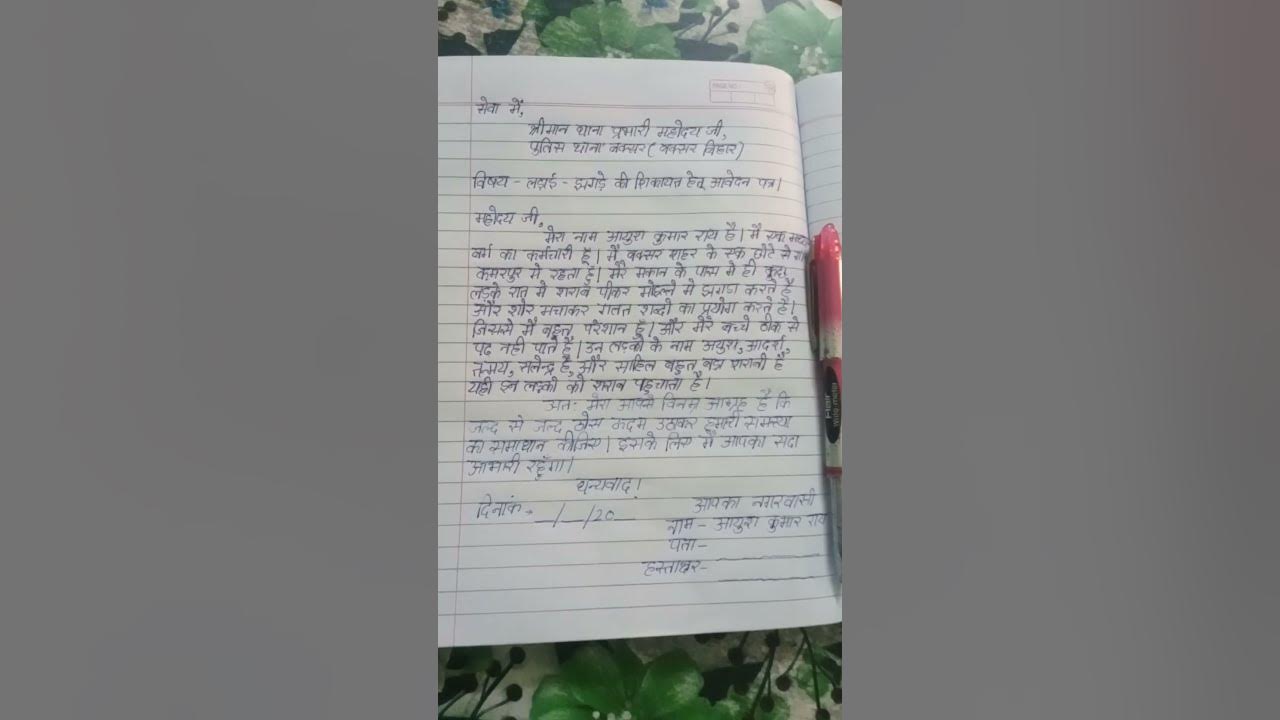 PAGE NO.
सेवा में,
श्रीमान थाना प्रभारी महोदय जी,
पुलिस थाना बक्सर (बक्सर बिहार)
विषय - लड़ाई - झगड़े की शिकायत हेतू आवेदन पत्र।
महोदय जी,
मेरा नाम आयुश कुमार राय है। मै एक मध्यम
वर्ग का कर्मचारी हूँ। मैं बक्सर शहर के एक छोटे से
कमरपुर मे रहता हूँ। मेरे मकान के पास मे ही कुछ
लड़के रात मे शराब पीकर मोहल्ले मे झगड़ा करते है
और शोर मचाकर गलत शब्दो का प्रयोग करते है।
जिससे मैं बहुत परेशान हूँ। और मेरे बच्चे ठीक से
पढ़ नही पाते है। उन लड़को के नाम आयुश, आदर्श,
तन्मय, सत्येन्द्र है, और साहिल बहुत बड़ा शराबी है
यही इन लड़को को शराब पहुचाता है।
अतः मेरा आपसे विनम्र आग्रह है कि
जल्द से जल्द ठोस कदम उठाकर हमारी समस्या
का समाधान कीजिए। इसके लिए मैं आपका सदा
आभारी रहूँगा।
धन्यवाद!
दिनांक - __/__/20__ आपका नगरवासी
नाम - आयुश कुमार राय
पता -
हस्ताक्षर -
Hair
Write meter